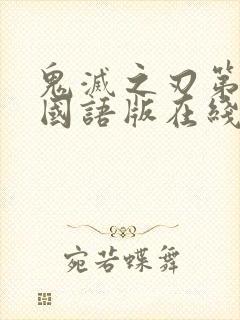 鬼滅之刃第
國語版在綫
宛若蝶舞